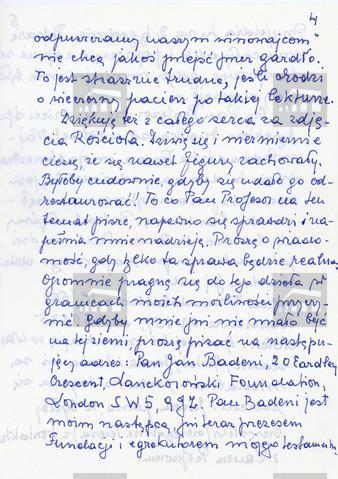 4
odpuszczamy naszym winowajcom"
nie chcą jakoś przejść przez gardło.
To jest strasznie trudne, jeśli chodzi
o wieczorny pacierz po takiej lekturze.
Dziękuję też z całego serca za zdję-
cia Kościoła. Dziwię się i niezmiernie
cieszę, że się nawet figury zachowały.
Byłoby cudownie, gdyby się udało go od-
restaurować! To co Pan Profesor na ten
temat pisze, napewno się sprawdzi i na-
pełnia mnie nadzieją. Proszę o wiado-
mość, gdy tylko ta sprawa będzie realna.
Ogromnie pragnę się do tego dzieła w
granicach moich możliwości przyczy-
nić. Gdyby mnie już nie miało być
na tej ziemi, proszę pisać na następu-
jący adres: Pan Jan Badeni, 20 Eardley
Crescent, Lanckoroński Foundation,
London SW5 9JZ. Pan Badeni jest
moim następcą, już teraz prezesem
Fundacji i egzekutorem mojego testamentu.